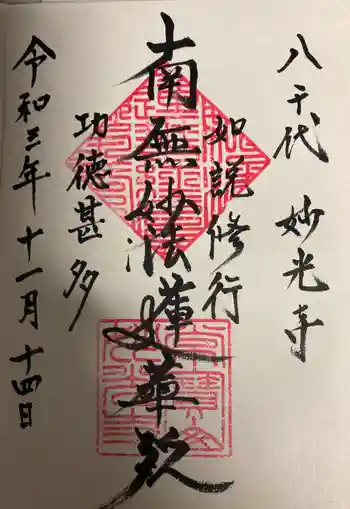 八千代 妙光寺
如説修行
南無妙法蓮華経
功徳甚多
令和三年 十一月 十四日